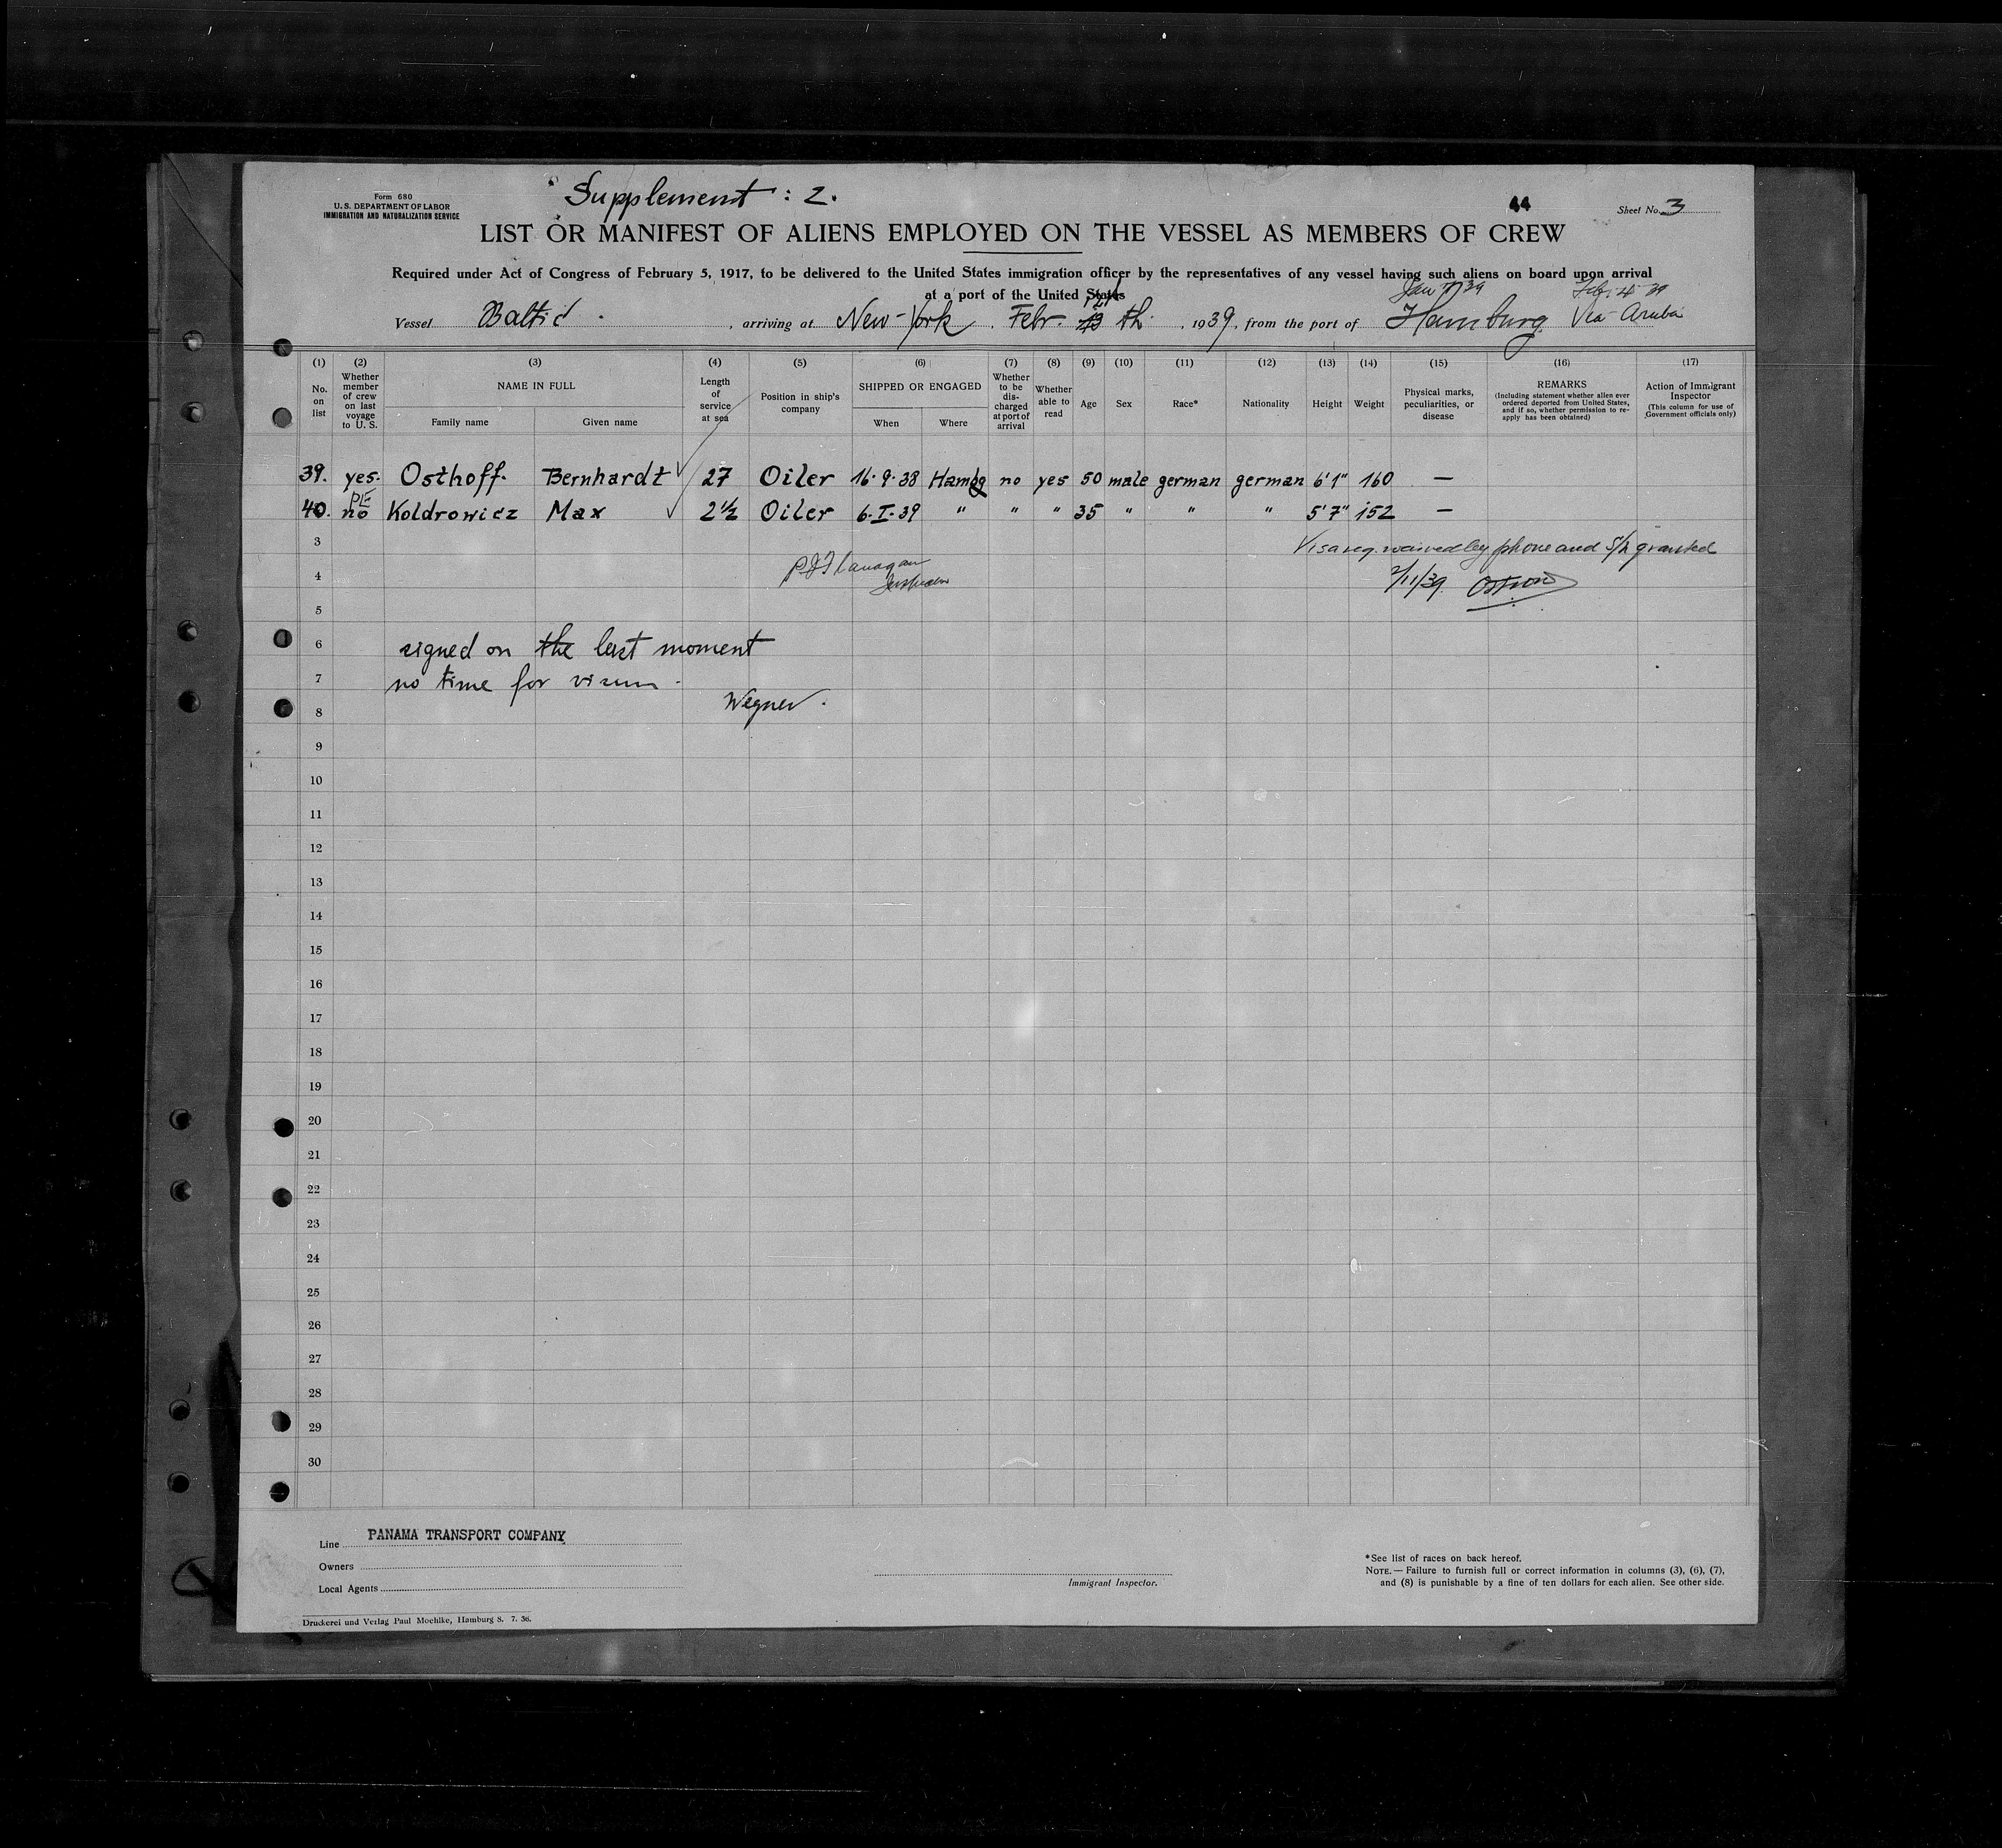 Supplement : 2.
Form 680
U. S. DEPARTMENT OF LABOR
IMMIGRATION AND NATURALIZATION SERVICE
44
Sheet No. 3
LIST OR MANIFEST OF ALIENS EMPLOYED ON THE VESSEL AS MEMBERS OF CREW
Required under Act of Congress of February 5, 1917, to be delivered to the United States immigration officer by the representatives of any vessel having such aliens on board upon arrival
at a port of the United States
Jan 39 Feb. 4 39
Vessel Baltic . , arriving at New-York Febr. th. , 1939, from the port of Hamburg. Via Aruba
(1) (2) (3) (4) (5) (6) (7) (8) (9) (10) (11) (12) (13) (14) (15) (16) (17)
No. on list
Whether member of crew on last voyage to U. S.
NAME IN FULL
Family name
Given name
Length of service at sea
Position in ship's company
SHIPPED OR ENGAGED
When
Where
Whether to be discharged at port of arrival
Whether able to read
Age
Sex
Race*
Nationality
Height
Weight
Physical marks, peculiarities, or disease
REMARKS
(Including statement whether alien ever ordered deported from United States, and if so, whether permission to re-apply has been obtained)
Action of Immigrant Inspector
(This column for use of Government officials only)
39. yes. Osthoff. Bernhardt 27 Oiler 16·9·38 Hambg no yes 50 male german german 6'1" 160 —
PE
40. no Koldrowicz Max 2½ Oiler 6·I·39 " " " 35 " " " 5'7" 152 —
3 Visa req. waived by phone and S/L granted
P J Flanagan
4 2/11/39
5
6 signed on the last moment
7 no time for visum.
8 Wegner.
9
10
11
12
13
14
15
16
17
18
19
20
21
22
23
24
25
26
27
28
29
30
Line PANAMA TRANSPORT COMPANY
Owners
Local Agents
Immigrant Inspector.
*See list of races on back hereof.
NOTE.—Failure to furnish full or correct information in columns (3), (6), (7),
and (8) is punishable by a fine of ten dollars for each alien. See other side.
Druckerei und Verlag Paul Moehlke, Hamburg 8. 7. 36.